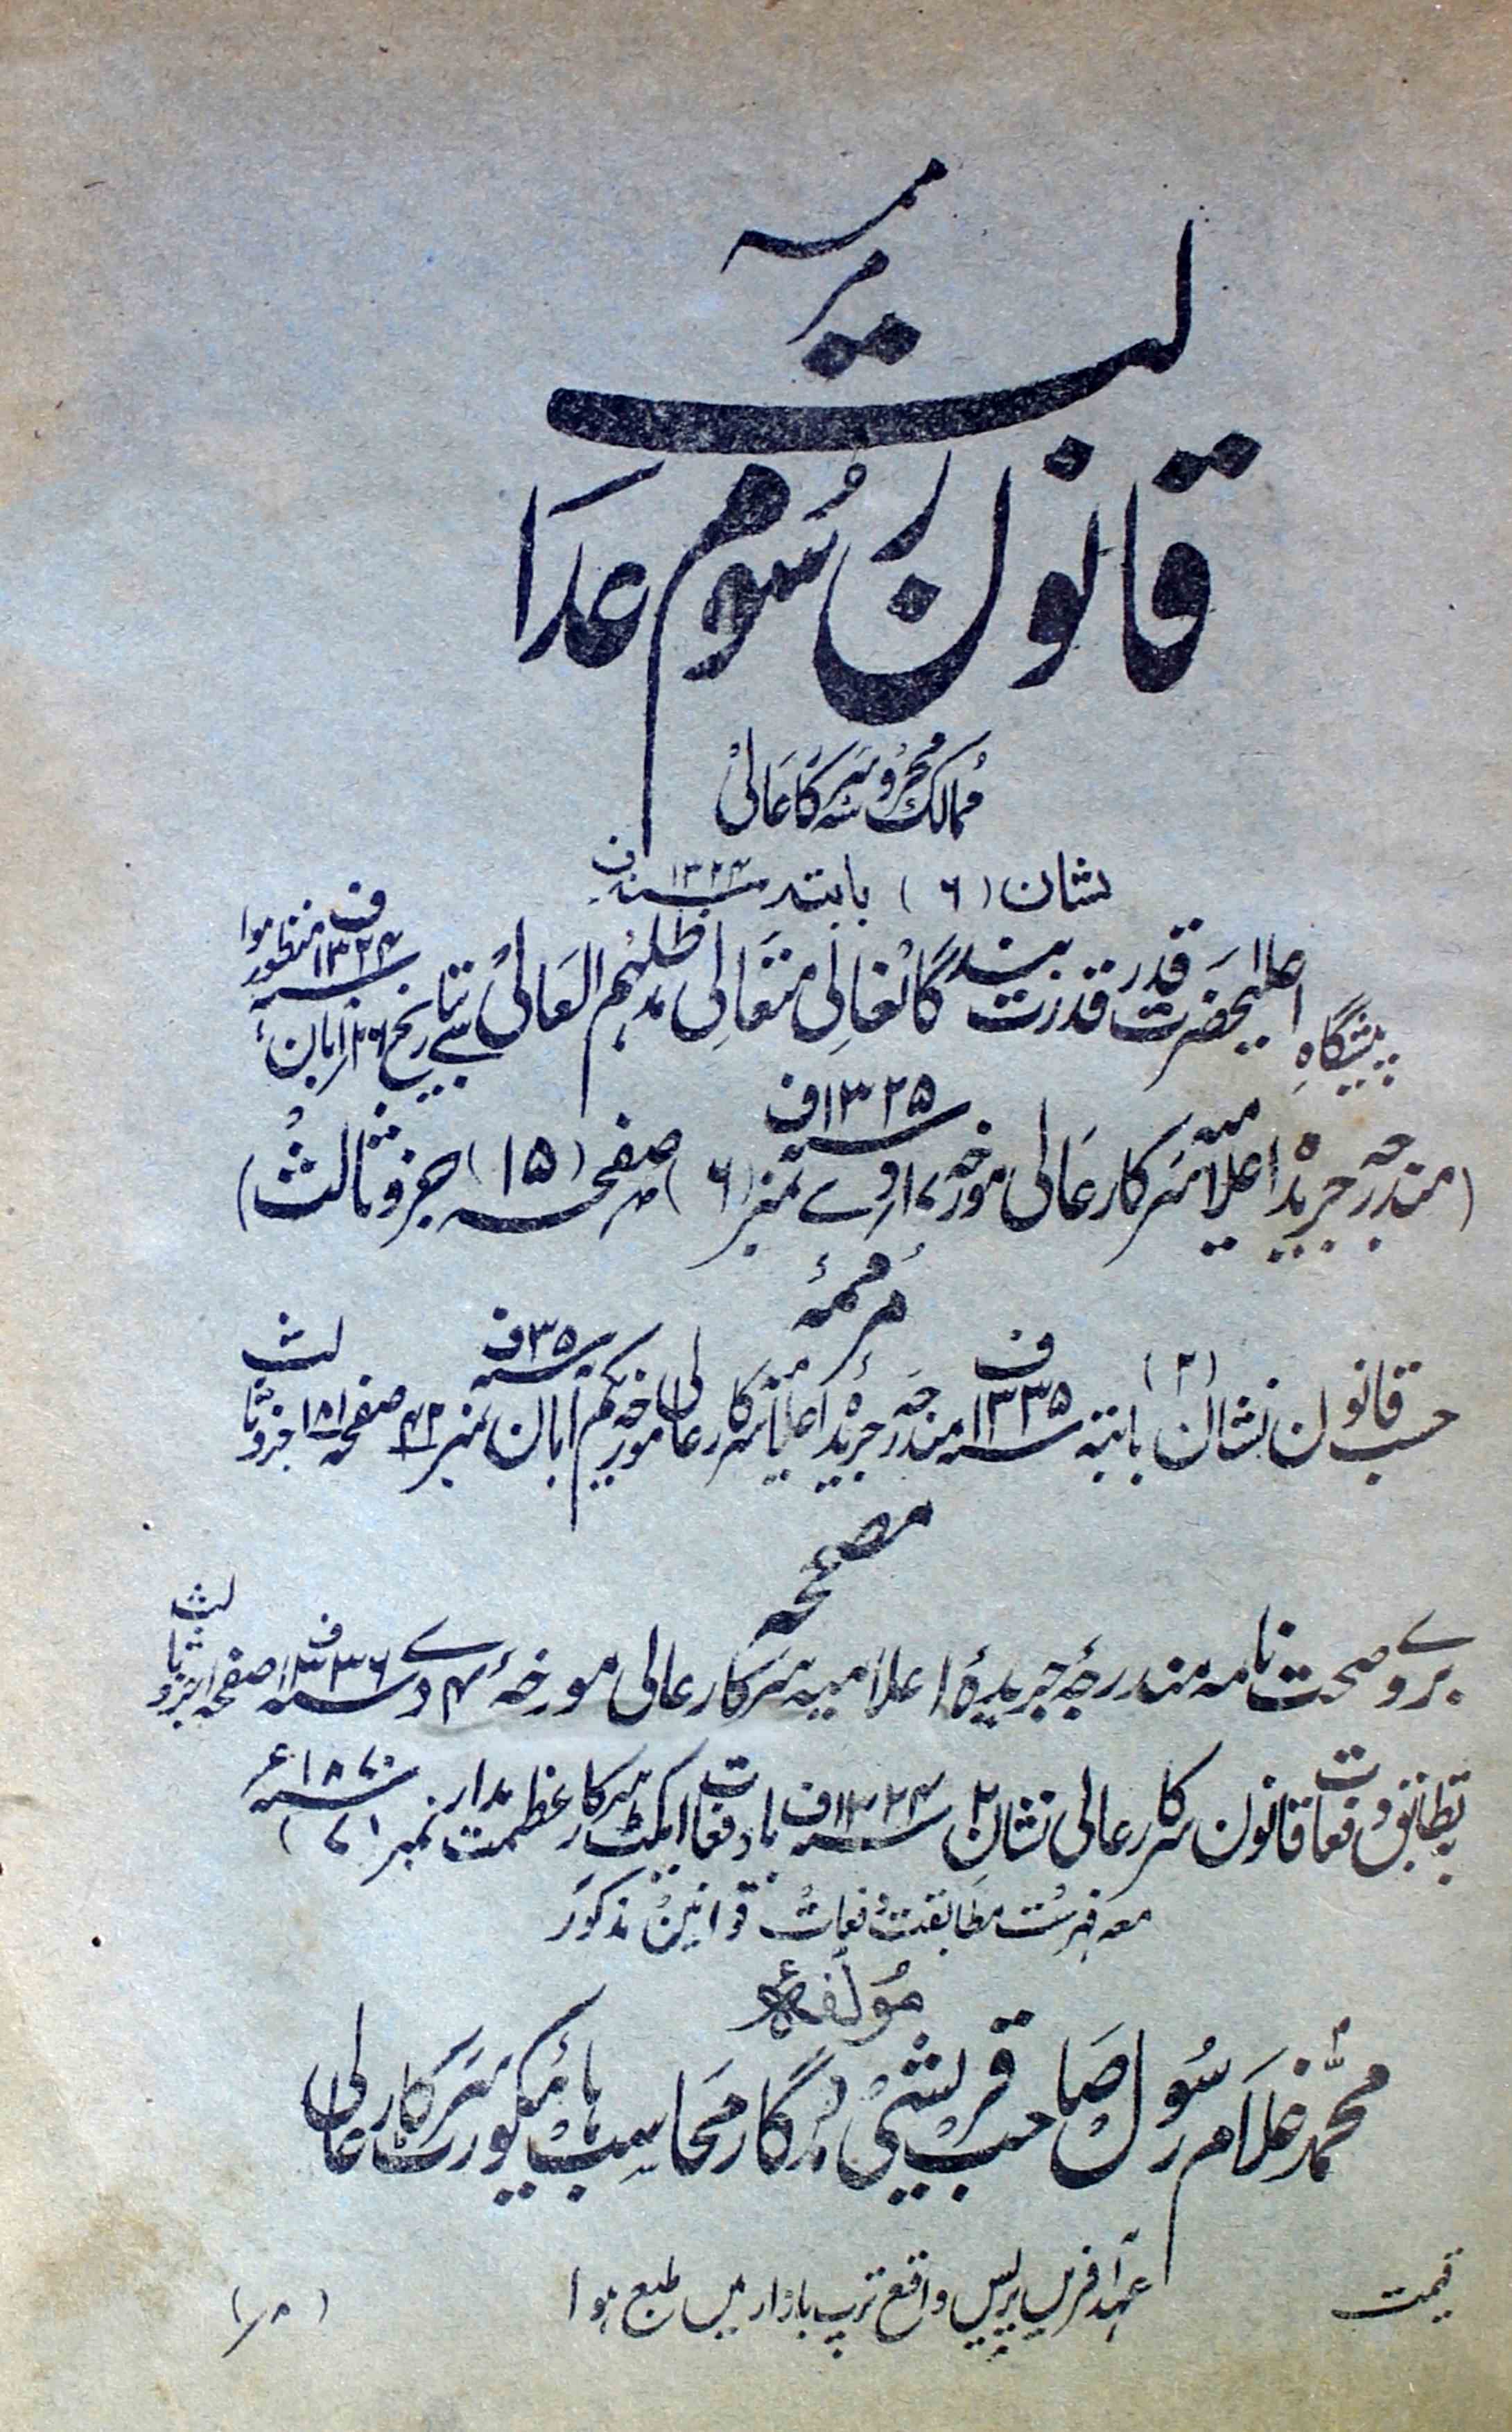 قانون رسوم عدالت
مرممہ
ممالک محروسہ سرکار عالی
نشان (۶) بابتہ سنہ ۱۳۲۴ف
پیشگاہِ اعلیٰحضرت قدر قدرت بندگانعالی متعالی مدظلہم العالی سے بتاریخ ۲۶ آبان سنہ ۱۳۲۴ف منظور ہوا
(مندرجہ جریدہ اعلامیہ سرکار عالی مورخہ ۱۷ دے سنہ ۱۳۲۵ف نمبر (۶) صفحہ (۱۵) جزو ثالث)
مرممہٴ
حسب قانون نشان (۲) بابتہ سنہ ۱۳۳۵ف مندرجہ جریدہ اعلامیہ سرکار عالی مورخہ یکم آبان سنہ ۳۵ف نمبر ۴۲ صفحہ ۱۸۱ جزو ثالث
مصححہ
بروے صحت نامہ مندرجہٴ جریدہٴ اعلامیہ سرکار عالی مورخہٴ ۴ دے سنہ ۱۳۳۶ف صفحہ ۱ جزو ثالث
بتطابق دفعات قانون سرکار عالی نشان سنہ ۱۳۲۴ف با دفعات ایکٹ سرکار عظمت مدار نمبر (۷) سنہ ۱۸۷۰ع
معہ فہرست مطابقت دفعات قوانین مذکور
مؤلفہٴ
محمد غلام رسول صاحب قریشی مددگار محاسب ہائیکورٹ سرکار عالی
قیمت عہد آفریں پریس واقع ترپ بازار میں طبع ہوا (۸؍)